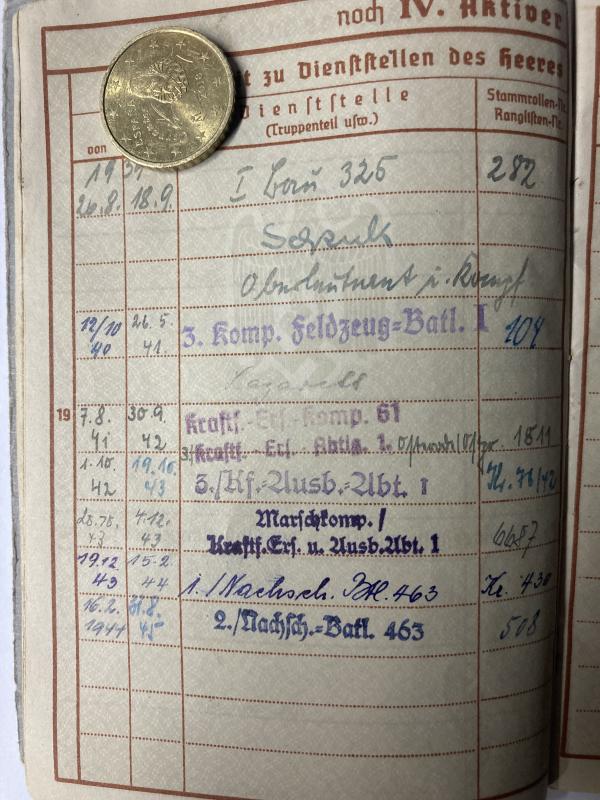 noch IV. Aktiver
t zu Dienststellen des Heeres
von
Dienststelle
(Truppenteil usw.)
Stammrollen-Nr.
Ranglisten-Nr.
2018
19
26.8. 18.9. I Bau 325 282
Oberleutnant
12/10 40 26.5. 41. 3. Komp. Feldzeug=Batl. I 104
Lazarett
19 7.8. 41 30.9. 42 Kraftf.-Ers.-Komp. 61
3/Kraftf.-Ers. Abtlg. 1. Osterode/Ostpr. 1811
1.10. 42 19.10. 43 3./Kf.=Ausb.=Abt. 1 Kr. 78/42
4.12. 43 Marschkomp./
Kraftf.Ers. u. Ausb.Abt. 1 6687
19.12. 43 15.2. 44 1./Nachsch. Btl. 463 Kr. 430
16.2. 1944 45 2./Nachsch.=Batl. 463 508